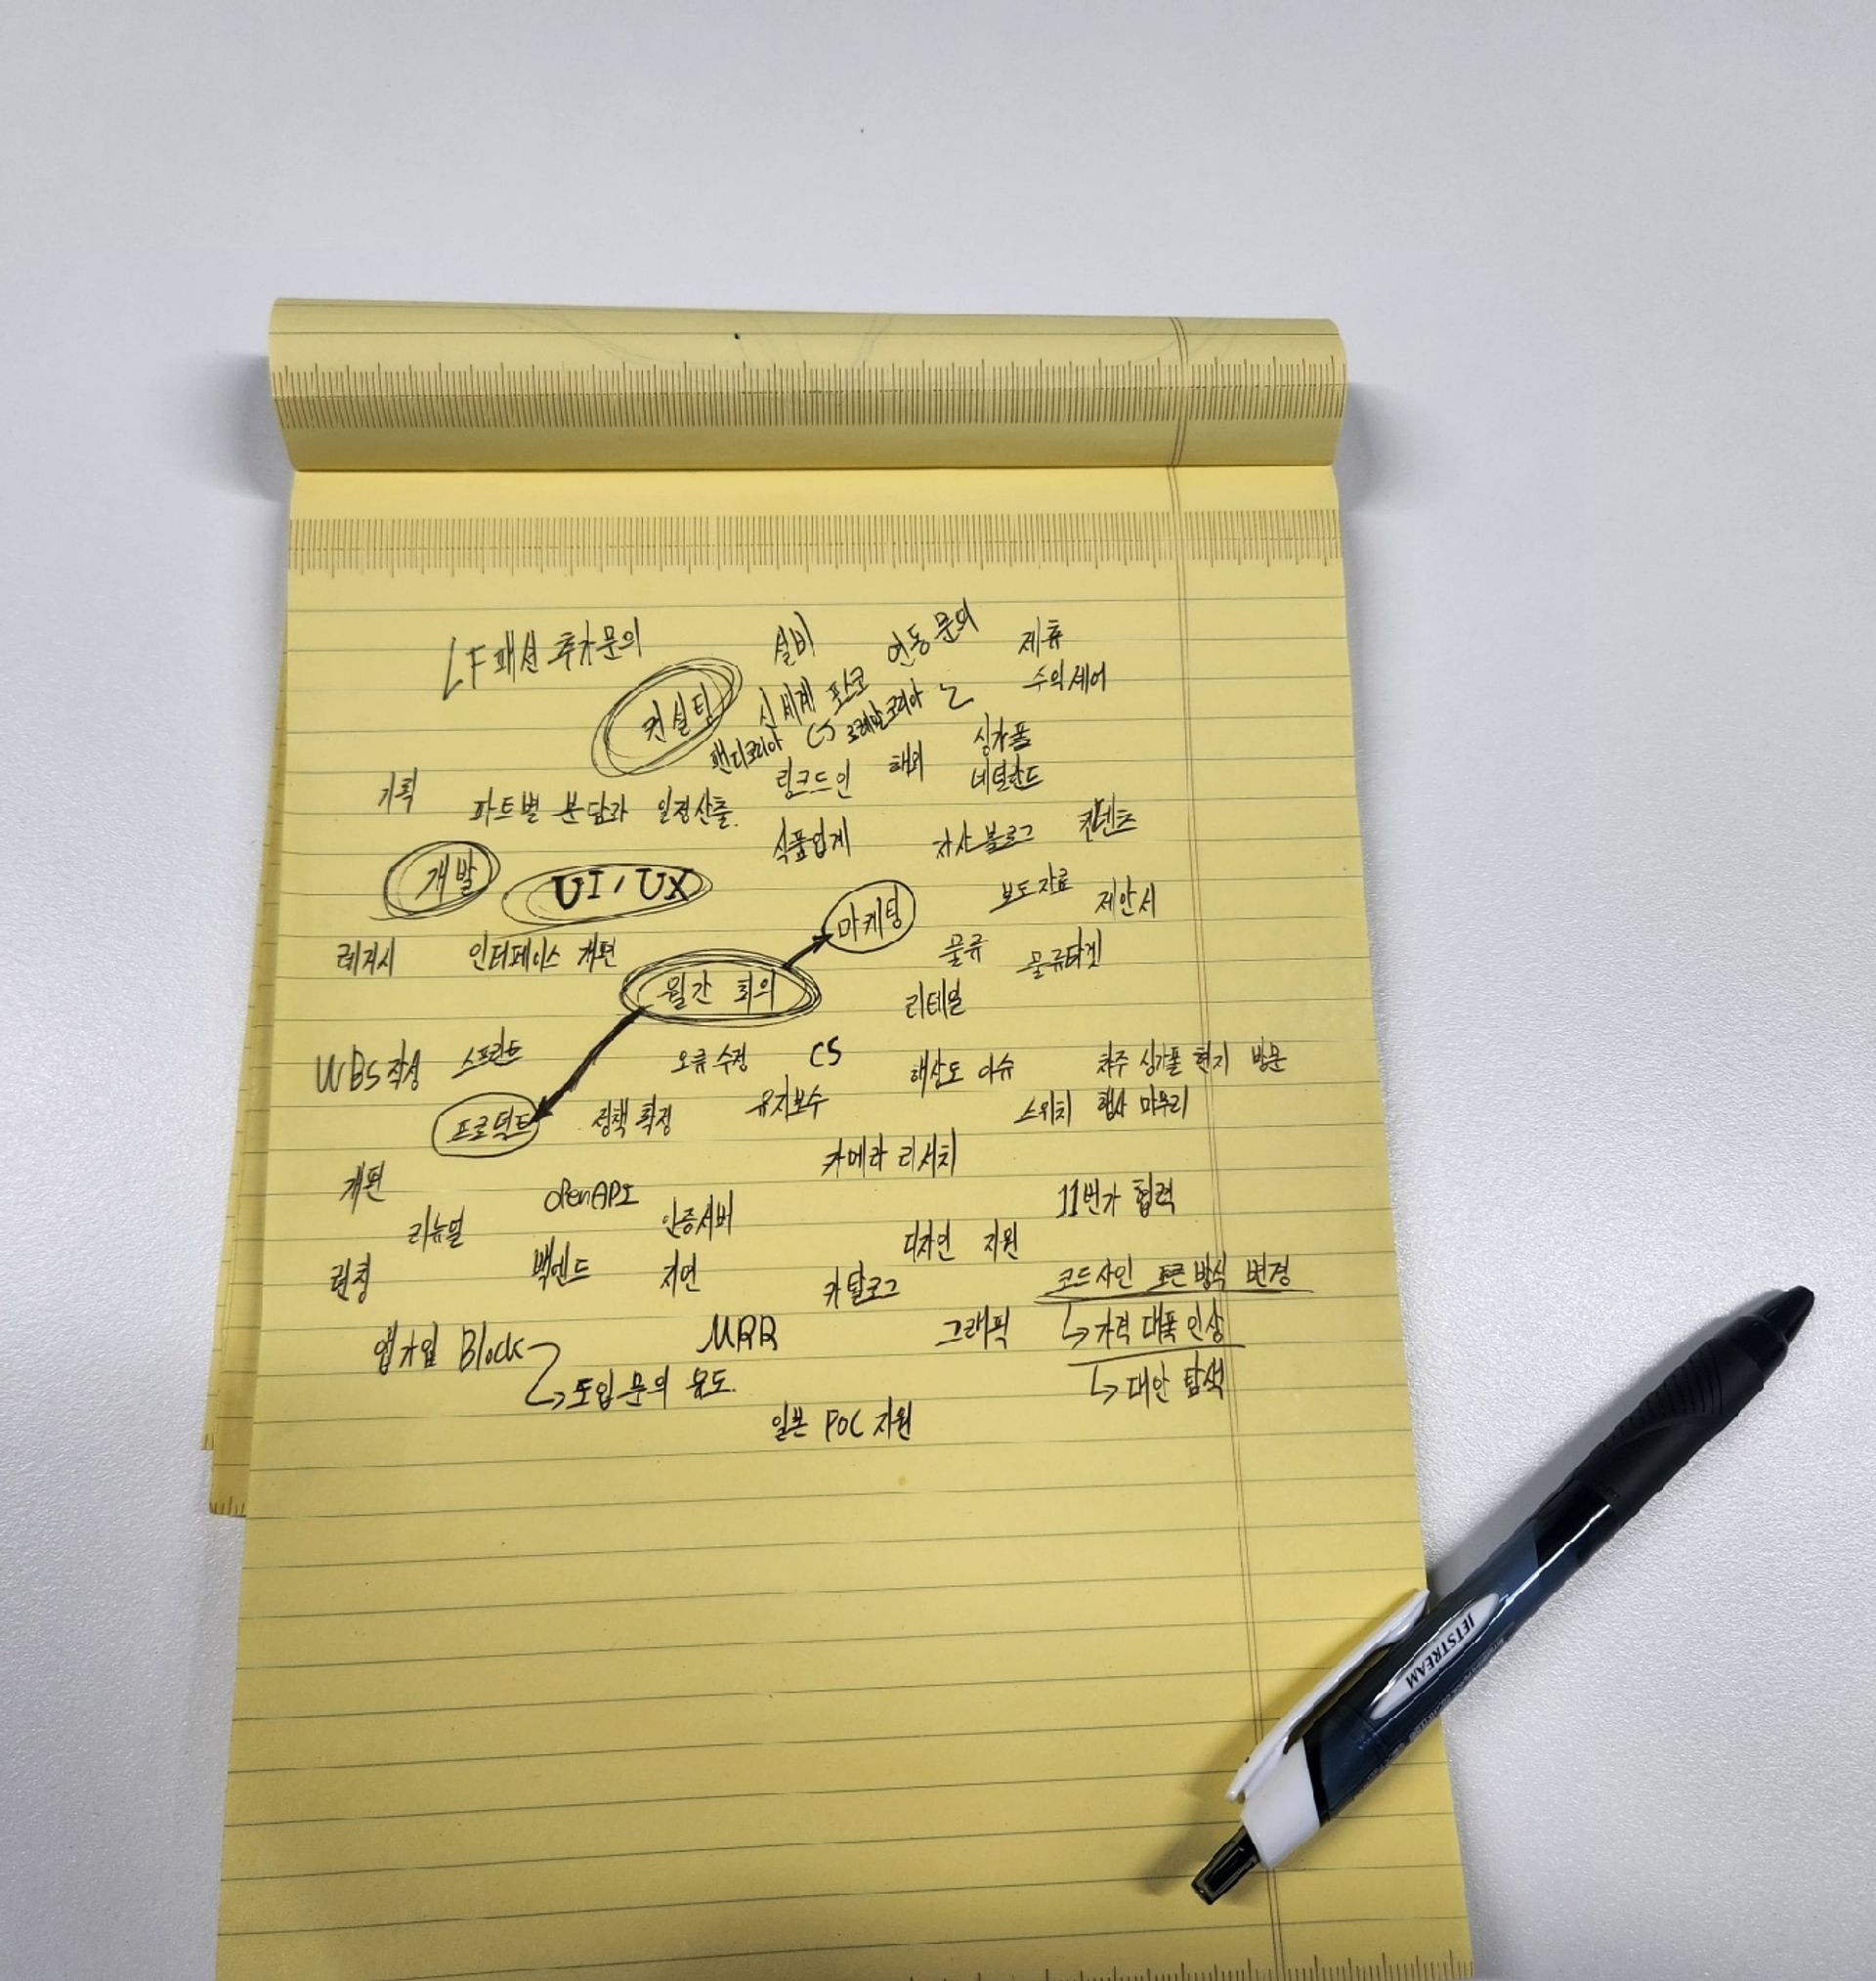 LF패션 추가문의
설비
연동문의
제휴
수익셰어
컨설팅
신세계 포스코
팬디코리아 CS 로레알코리아
싱가폴
네덜란드
링크드인
해외
기획
파트별 분담과 일정산출.
식품업계
자사 블로그
컨텐츠
개발
UI/UX
마케팅
보도자료
제안서
레거시
인터페이스 개편
월간 회의
물류
물류타겟
리테일
WBS 작성
스프린트
오류 수정
CS
해상도 이슈
차주 싱가폴 현지 방문
프로덕트
정책 확정
유지보수
스위치 행사 마무리
카메라 리서치
개편
OPenAPI
11번가 협력
리뉴얼
인증서버
디자인 지원
런칭
백엔드
지연
카탈로그
코드사인 토큰 방식 변경
앱가입 Block
MRR
그래픽
↳ 가격 대폭 인상
→ 도입 문의 유도.
↳ 대안 탐색
일본 POC 지원
JETSTREAM